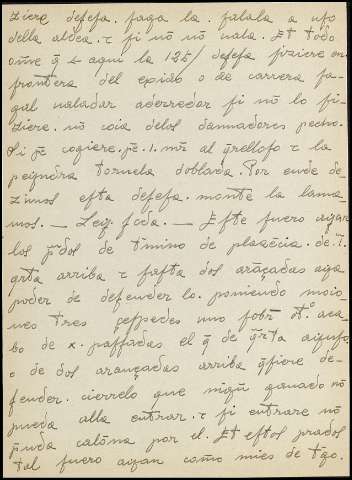 ziere defesa. faga la. fatala a uso
della aldea. τ si nõ nõ uala. Et todo
om̃e q̃ aqui la 125/ defesa fiziere en
frontera del exido o de carrera fa-
ga ualadar aderredor si nõ lo fi-
ziere. nõ coia delos dannadores pecho.
Si p̃c cogiere. p̃c. 1. mr̃ al q̃relloso τ la
peyndra tornela doblada. Por ende de-
zimos esta defesa. monte la llama-
mos. — Ley. — Este fuero ayan
los p̃dos de t̃mino de plazẽcia. de. ĩ.
arriba τ fasta dos arãçadas aya
poder de defender lo. poniendo moio-
nes tres çespedes uno sobr̃ ot̊. aca-
bo de x. passadas el q̃ de q̃rta ayuso,
o de dos arançadas arriba q̃siere de-
fender. cierrelo que nigũ ganado nõ
pueda alla entrar. τ si entrare nõ
p̃nda calõna por el. Et estos prados
tal fuero ayan como mies de t̃go.